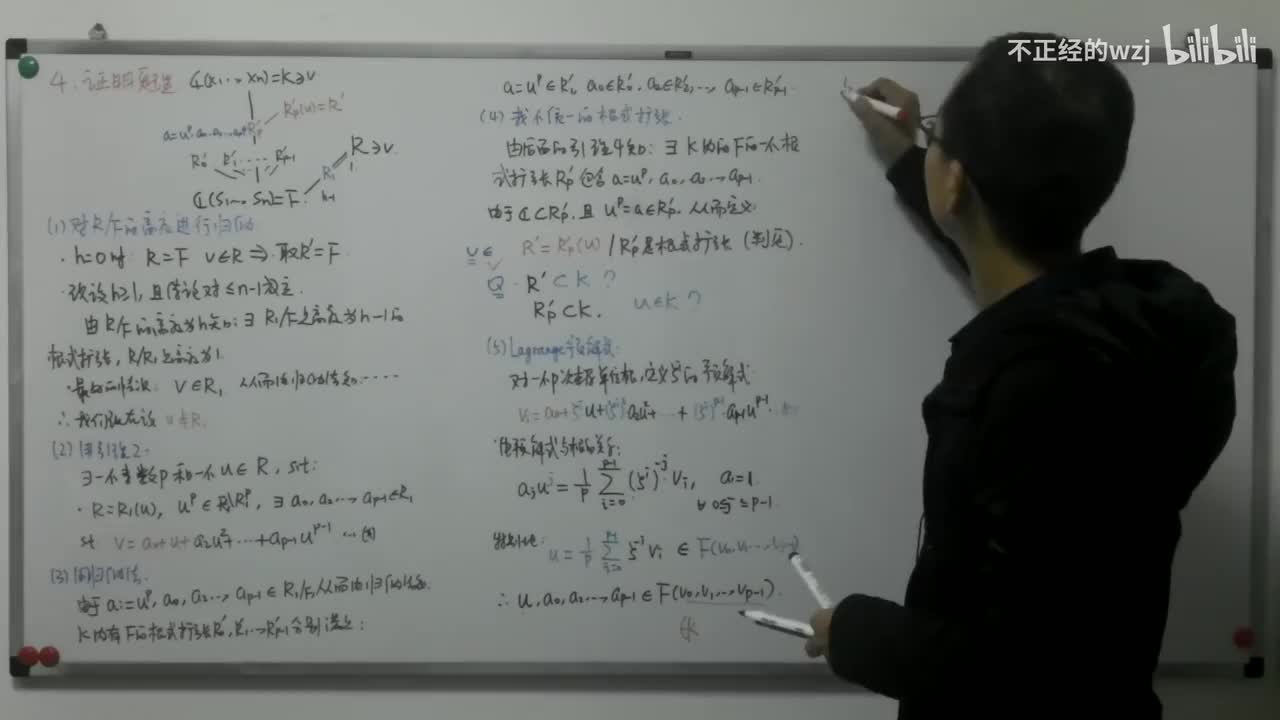 不正经的wzj bilibili
4. 证明定理 ℂ(x₁…xₙ)=K∋v
R'p(u)=R'
a=uᵖ, a₀, a₂…
R'₀ R'₁ … R'p-1
R∋v
R₁
h-1
ℂ(s₁…sₙ)=F
(1) 对R/F的高度进行归纳
· h=0时 R=F v∈R ⇒ 取R'=F
· 设 h≥1, 且结论对≤n-1成立.
由R/F的高度为h知: ∃ R₁/F之高度为h-1的
根式扩张, R/R₁之高度为1.
· 最好的情况: v∈R₁ 从而由归纳假设……
∴ 我们现在设 ∉R₁
(2) 引理2:
∃一个素数p和一个u∈R, s.t:
· R=R₁(u), uᵖ∈R₁, ∃ a₀, a₂…, ap-1∈R₁
st v=a₀+u+a₂u²+…+ap-1uᵖ⁻¹
(3) 用归纳法.
由于 a:=uᵖ, a₀, a₂…, ap-1∈R₁, 从而由归纳假设
K内有F的根式扩张R', R'₀, R'₁…R'p-1分别满足:
a=uᵖ∈R', a₀∈R'₀, a₂∈R'₂, …, ap-1∈R'p-1.
(4) 找个统一的根式扩张.
由后面的引理4知: ∃ K内的F的一个根
式扩张R'p包含a=uᵖ, a₀, a₂…ap-1.
由于ℂ⊂R'p, 且uᵖ=a∈R'p. 从而定义
v∈
R'=R'p(u) / R'p是根式扩张
Q · R'⊂K ?
R'p⊂K. u∈K ?
(5) Lagrange预解式:
对一个p次本原单位根, 定义ζⁱ的预解式
vᵢ=a₀+ζⁱu+(ζⁱ)²a₂u²+…+(ζⁱ)ᵖ⁻¹ap-1uᵖ⁻¹.
由预解式与根的关系:
aⱼuʲ=1/p Σ(i=0 to p-1) (ζⁱ)⁻ʲ vᵢ, a₁=1
∀ 0≤j≤p-1.
特别地: u=1/p Σ(i=0 to p-1) ζ⁻ⁱ vᵢ ∈F(v₀, v₁…,
∴ u, a₀, a₂…, ap-1∈F(v₀, v₁, …, vp-1).